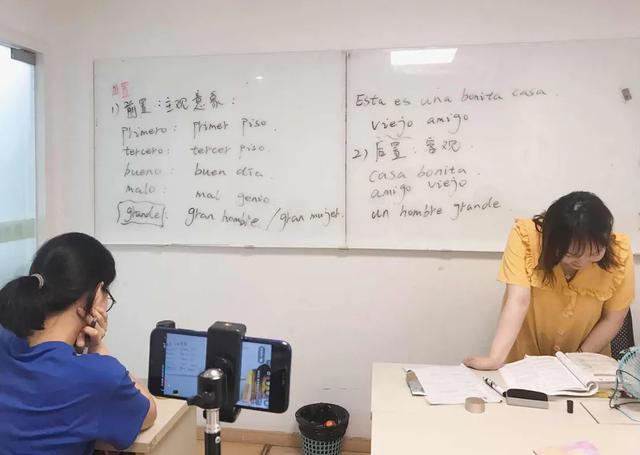 位置
1) 前置：主观意象：
primero: primer piso.
tercero: tercer piso.
bueno: buen dia.
malo: mal genio
grande: gran hombre / gran mujer.
Esta es una bonita casa.
viejo amigo
2) 后置：客观.
casa bonita.
amigo viejo
un hombre grande.